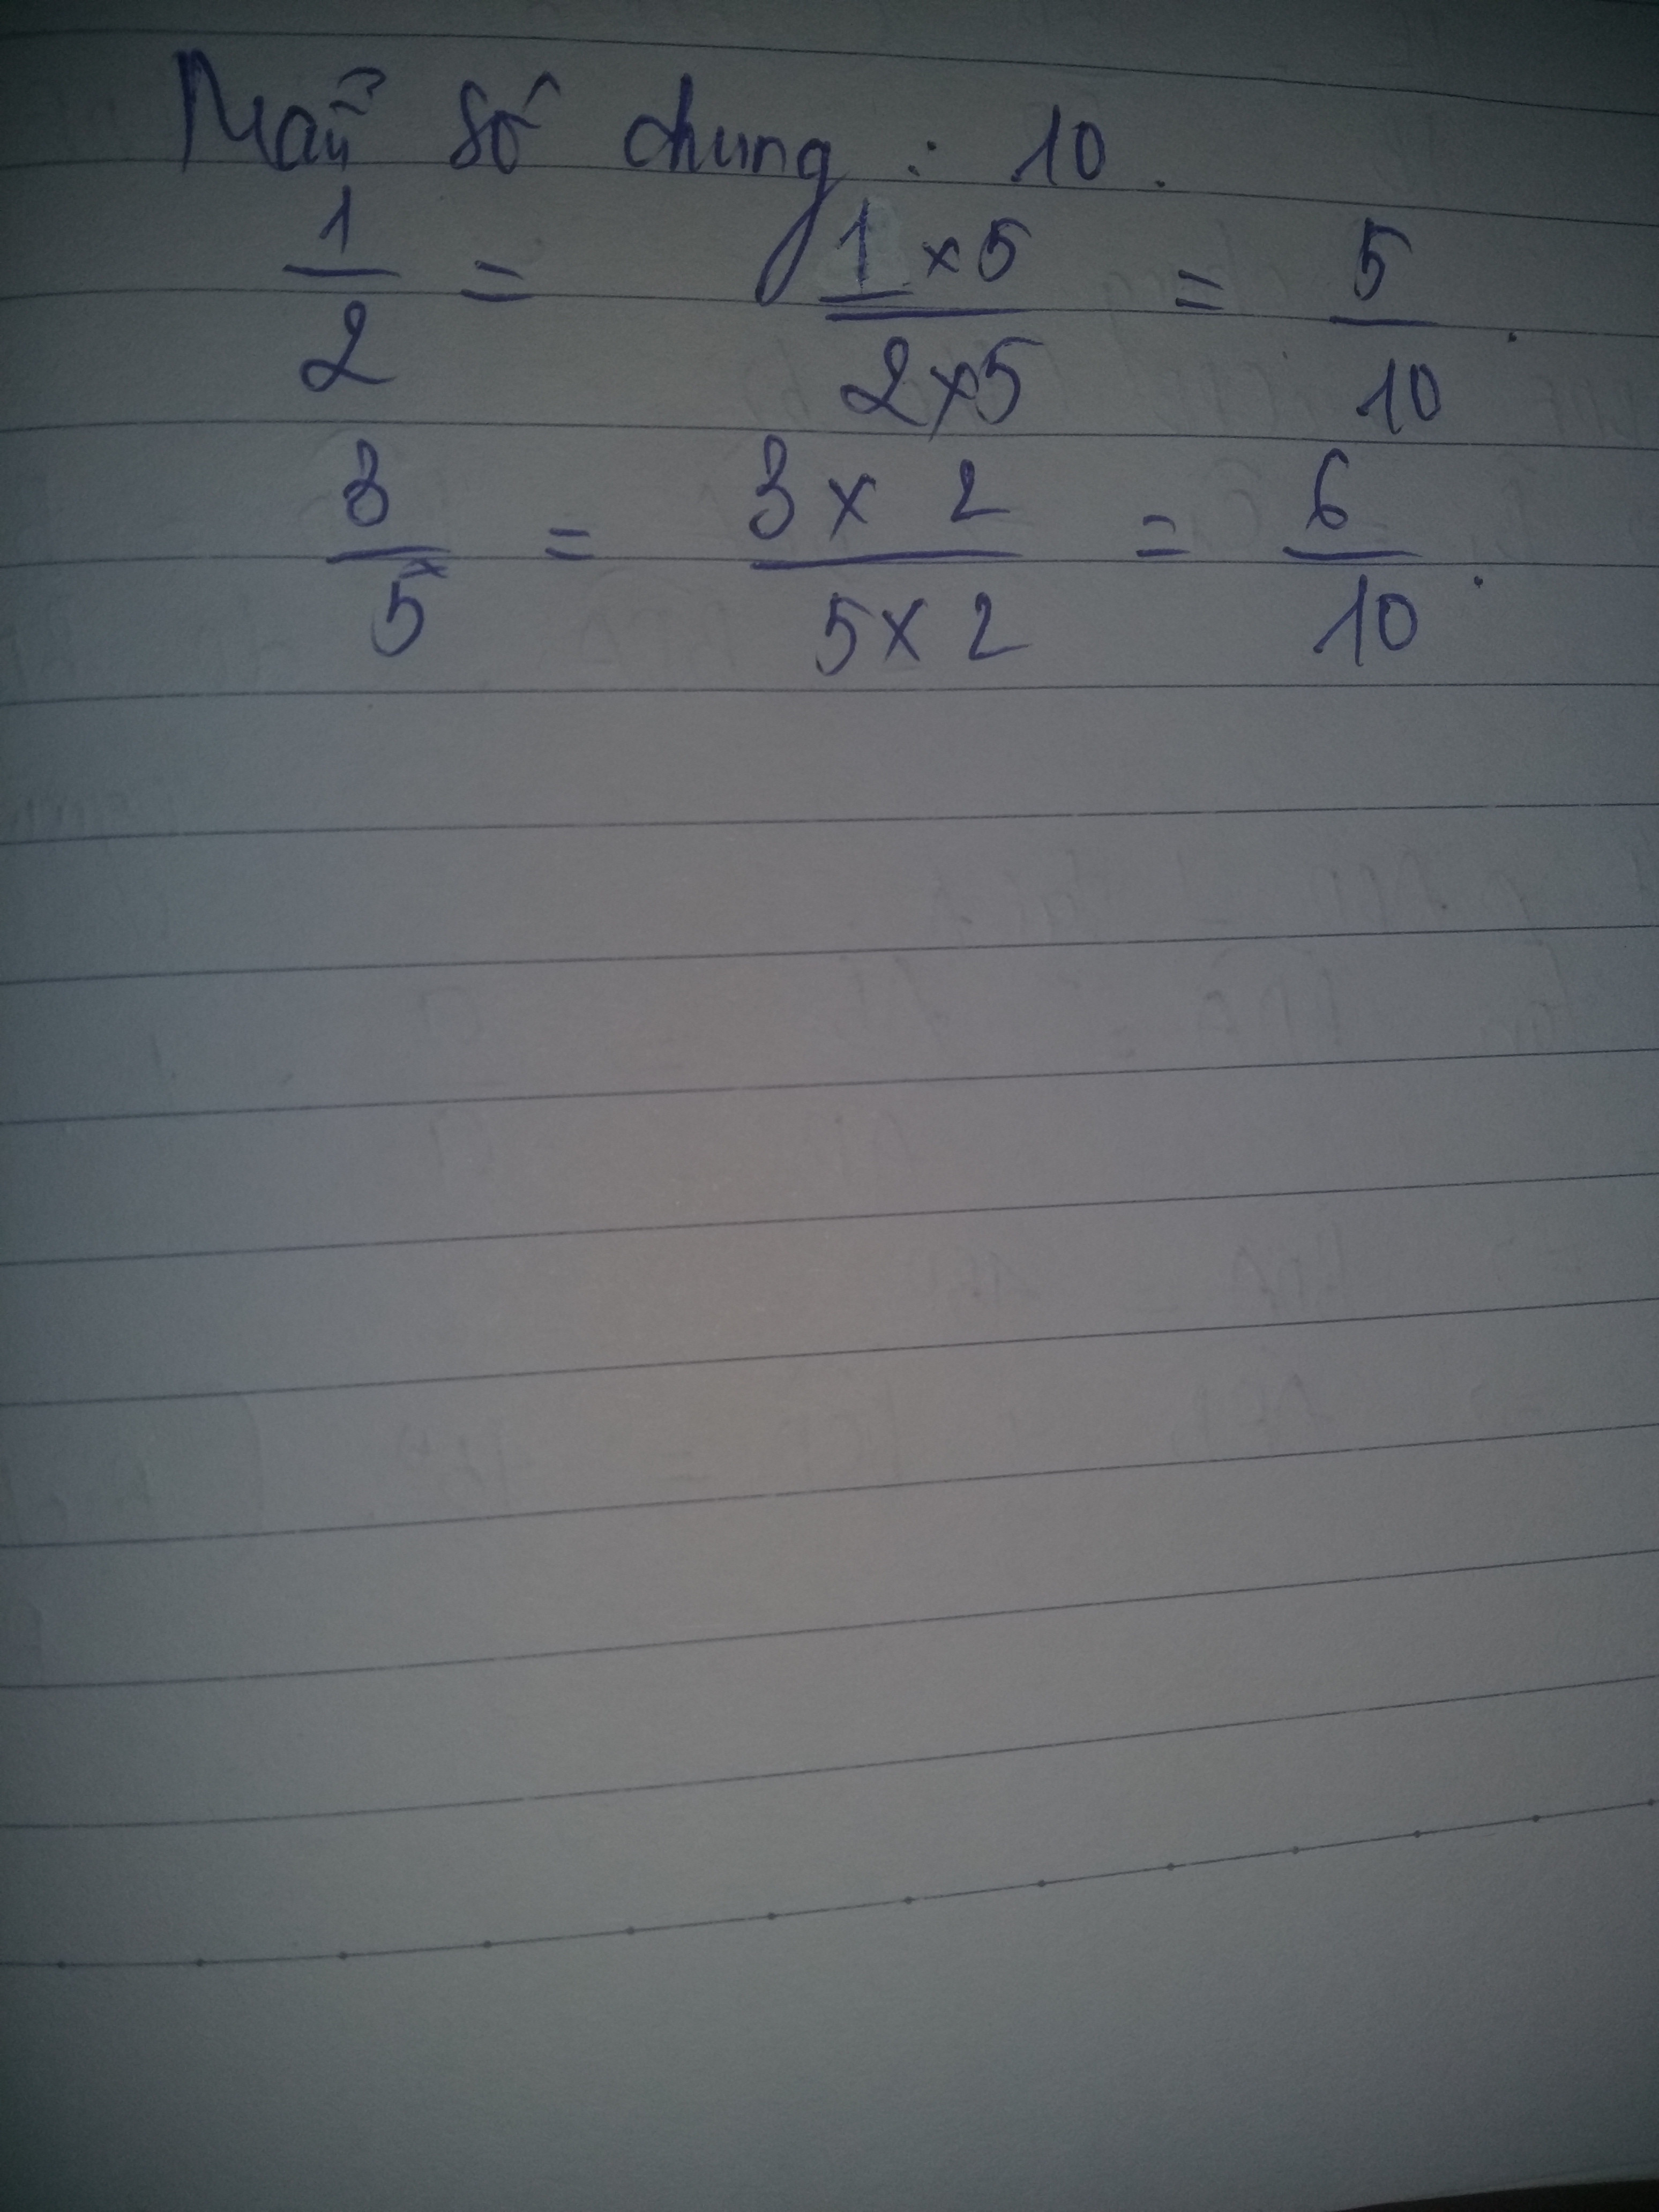 Mẫu số chung : 10.
1/2 = 1 x 5 / 2 x 5 = 5/10.
3/5 = 3 x 2 / 5 x 2 = 6/10.